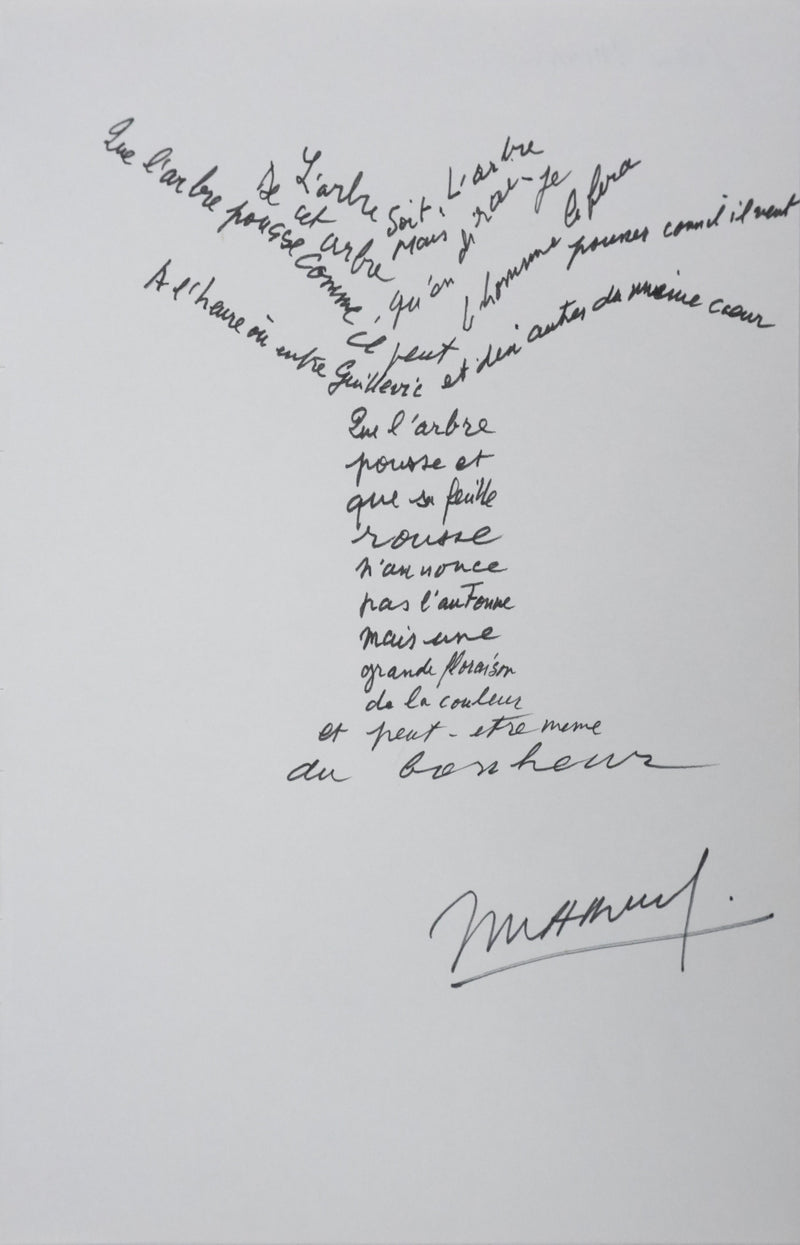 L'arbre soit, L'arbre
De cet arbre mais qu'en dirai-je
Que l'arbre pousse comme il peut
l'homme le fera pousser comm il veut
A l'heure où entre Guillevic et dix autres du même cœur
Que l'arbre
pousse et
que sa feuille
rousse
n'annonce
pas l'automne
mais une
grande floraison
de la couleur
et peut-etre meme
du bonheur